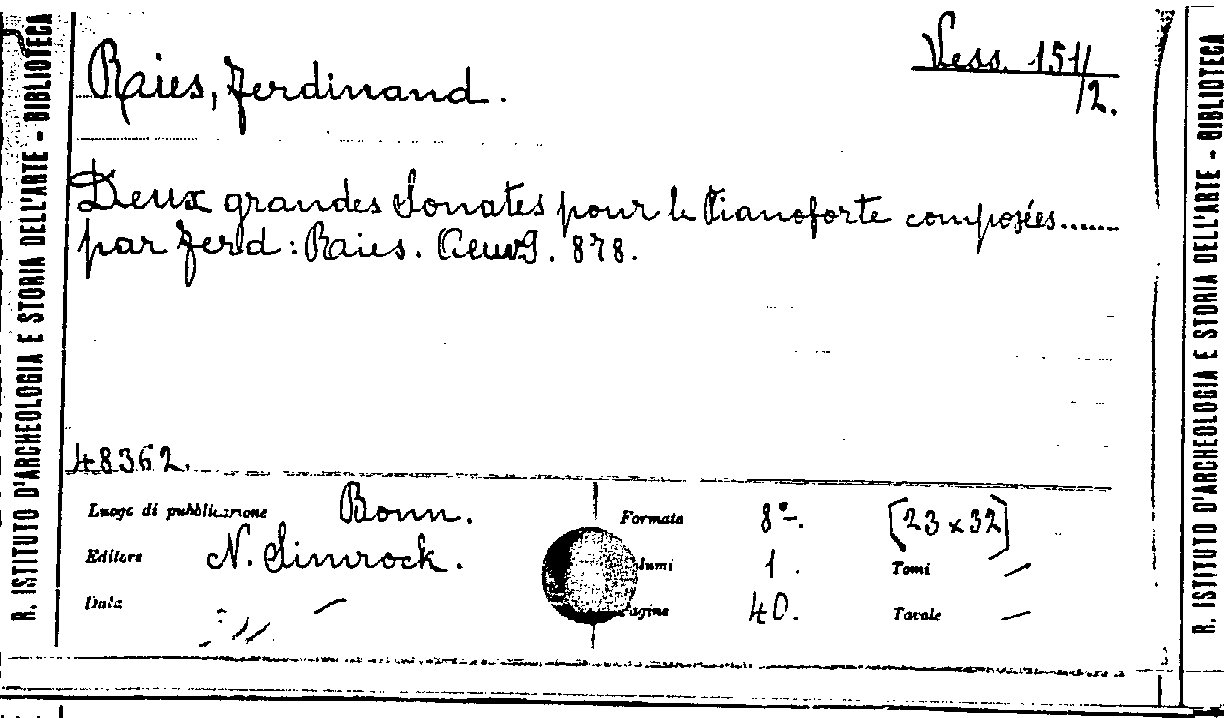 R. ISTITUTO D'ARCHEOLOGIA E STORIA DELL'ARTE - BIBLIOTECA
Raies, Ferdinand.
Vess. 151/
/2.
Deux grandes Sonates pour le Pianoforte composées......
par Ferd: Raies. Oeuv9. 878.
48362.
Luogo di pubblicazione Bonn. Formato 8°-. [23 x 32]
Editore N. Simrock. 1. Tomi —
Data — 40. Tavole —
R. ISTITUTO D'ARCHEOLOGIA E STORIA DELL'ARTE - BIBLIOTECA